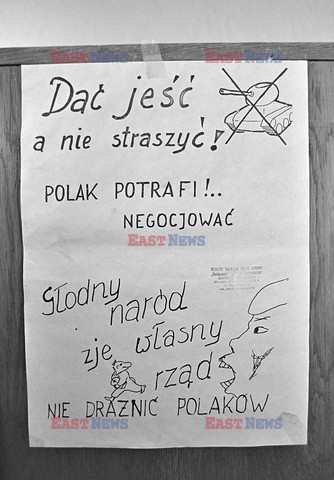 EAST NEWS EAST NEWS
Dać jeść
a nie straszyć!
POLAK POTRAFI!..
NEGOCJOWAĆ
EAST NEWS
Głodny
naród
zje własny
rząd
NIE DRAŻNIĆ POLAKÓW
EAST NEWS EAST NEWS